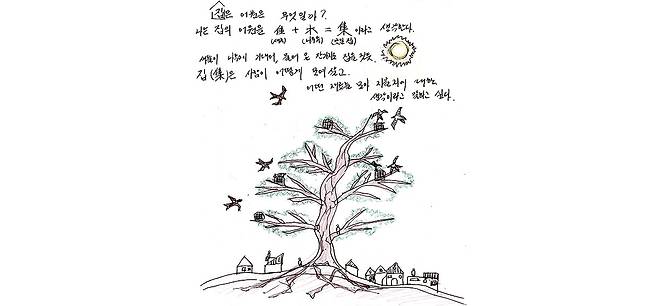 집은 어원은 무엇일까?
나는 집의 어원을 隹 + 木 = 集 이라고 생각한다.
(새추) (나무목) (모을 집)
새들이 나무에
집(集)은 사람이 어떻게 모여 살고.
어떤 재료를 모아 지을지에 대한
생각이라고 말하고 싶다.